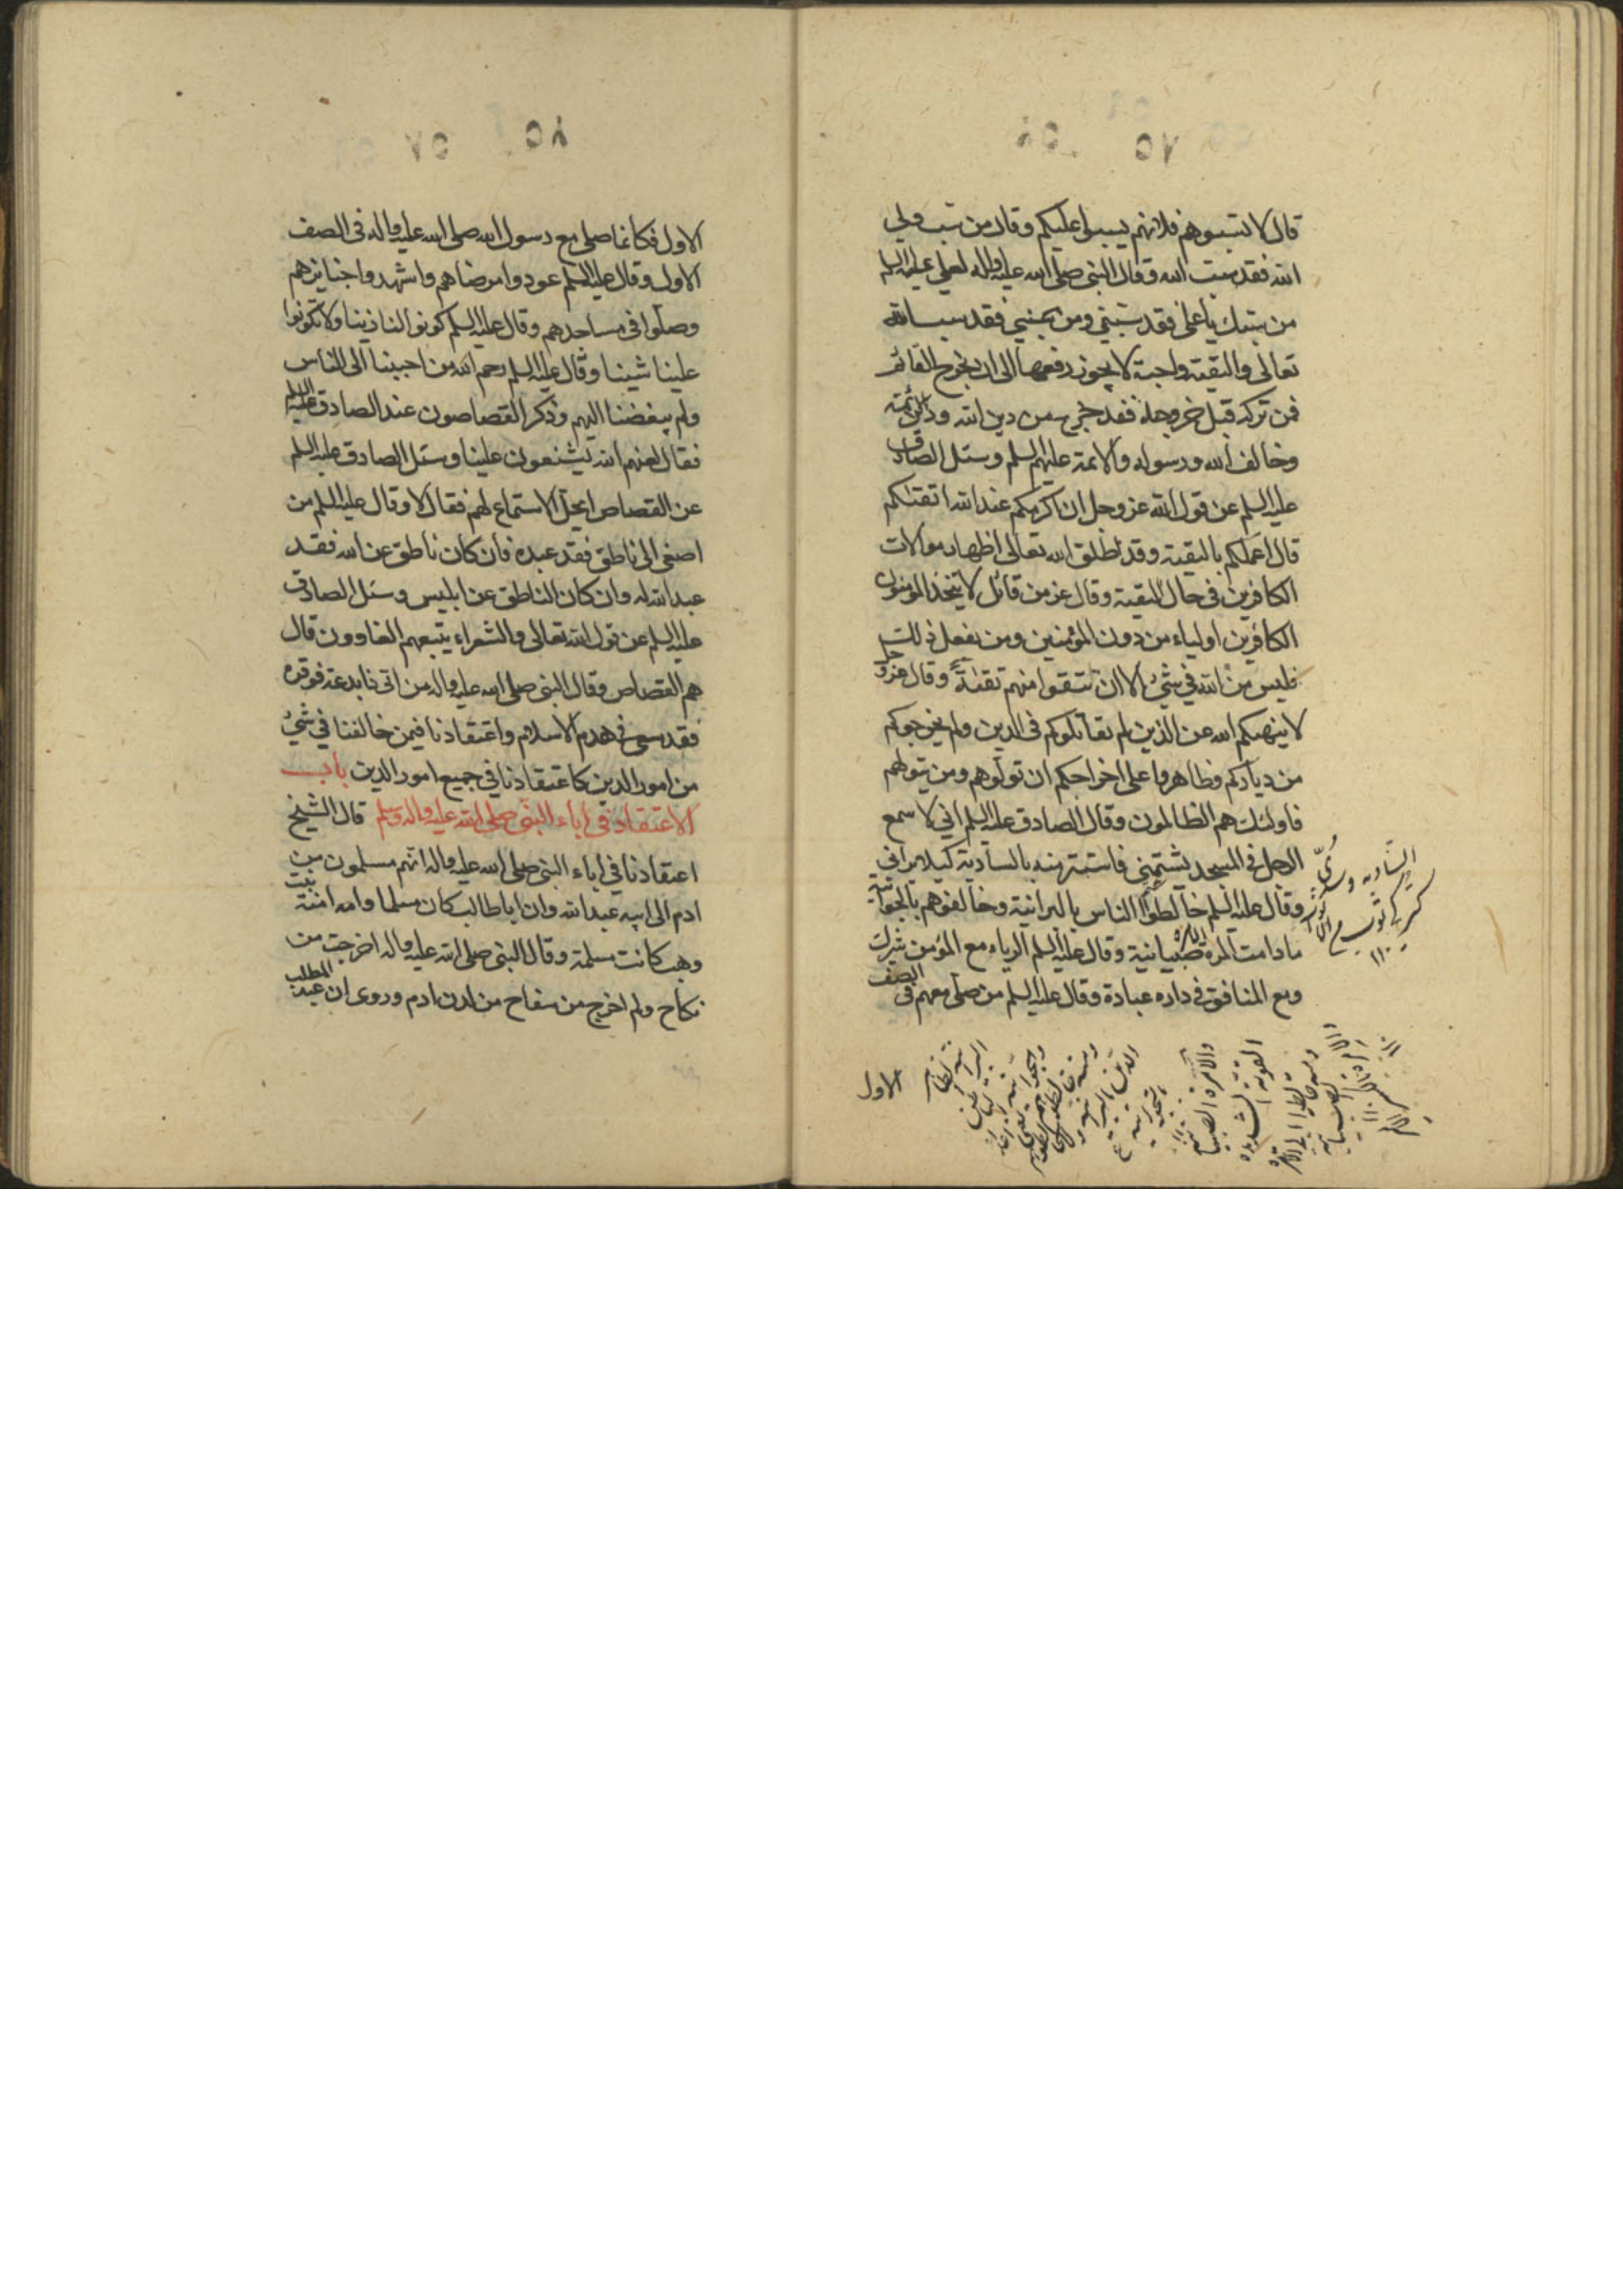 ٥٧
قال لا تسبوهم فلانهم يسبوا عليكم وقال من سب ولي
الله فقد سب الله وقال النبي صلى الله عليه واله لعلي عليه السلم
من سبك يا علي فقد سبني ومن سبني فقد سب الله
تعالى والتقية واجبة لا يجوز رفعها الى ان يخرج القائم
فمن تركه قبل خروجه فقد خرج من دين الله ودين الائمة
وخالف الله ورسوله والائمة عليهم السلم وسئل الصادق
عليه السلم عن قول الله عز وجل ان اكرمكم عند الله اتقيكم
قال اعملكم بالتقية وقد اطلق الله تعالى اظهار موالات
الكافرين في حال التقية وقال عز من قائل لا يتخذ المؤمنون
الكافرين اولياء من دون المؤمنين ومن يفعل ذلك
فليس من الله في شئ الا ان تتقوا منهم تقية وقال عز وجل
لا ينهيكم الله عن الذين لم يقاتلوكم في الدين ولم يخرجوكم
من دياركم وظاهروا على اخراجكم ان تولوهم ومن يتولهم
فاولئك هم الظالمون وقال الصادق عليه السلم اني لاسمع
الرجل في المسجد يشتمني فاستتر منه بالسارية كيلا يراني
وقال عليه السلم خالطوا الناس بالبرانية وخالفوهم بالجوانية
ما دامت الامرة صبيانية وقال عليه السلم الرياء مع المؤمن شرك
ومع المنافق في داره عبادة وقال عليه السلم من صلى معهم في الصف
الاول
٥٨
الاول فكانما صلى مع رسول الله صلى الله عليه واله في الصف
الاول وقال عليه السلم عودوا مرضاهم واشهدوا جنايزهم
وصلوا في مساجدهم وقال عليه السلم كونوا لنا زينا ولا تكونوا
علينا شينا وقال عليه السلم رحم الله من احببنا الى الناس
ولم يبغضنا اليهم وذكر القصاصون عند الصادق عليه السلم
فقال لعنهم الله يشنعون علينا وسئل الصادق عليه السلم
عن القصاص ايحل الاستماع لهم فقال لا وقال عليه السلم من
اصغى الى ناطق فقد عبده فان كان ناطق عن الله فقد
عبد الله وان كان الناطق عن ابليس وسئل الصادق
عليه السلم عن قول الله تعالى والشعراء يتبعهم الغاوون قال
هم القصاص وقال النبي صلى الله عليه واله من اتى ذا بدعة فوقره
فقد سعى في هدم الاسلام واعتقادنا فيمن خالفنا في شئ
من امور الدين كاعتقادنا في جميع امور الدين باب
الاعتقاد في اباء النبي صلى الله عليه واله وسلم قال الشيخ
اعتقادنا في اباء النبي صلى الله عليه واله انهم مسلمون من
ادم الى ابيه عبد الله وان ابا طالب كان مسلما وامه امنة بنت
وهب كانت مسلمة وقال النبي صلى الله عليه واله اخرجت من
نكاح ولم اخرج من سفاح من لدن ادم وروى ان عبد المطلب